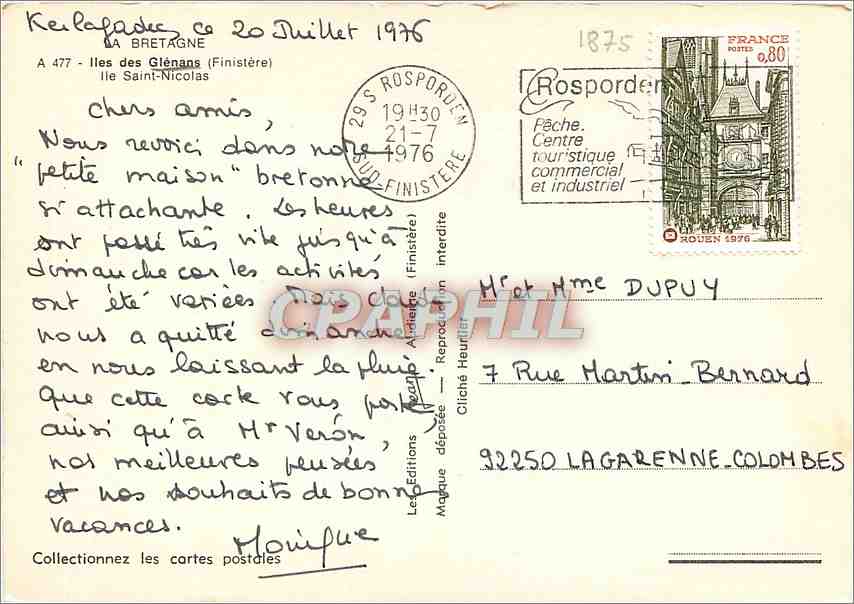 Kerlagadec ce 20 Juillet 1976
LA BRETAGNE
A 477 - Iles des Glénans (Finistère)
Ile Saint-Nicolas
chers amis,
Nous revoici dans notre
"petite maison" bretonne
si attachante. Les heures
ont passé très vite jusqu'à
dimanche car les activités
ont été variées. Mais
nous a quitté dimanche
en nous laissant la pluie.
Que cette carte vous porte
ainsi qu'à Mr Veron,
nos meilleures pensées
et nos souhaits de bonne
vacances.
Monique
Collectionnez les cartes postales
Les Editions Jean Audierne (Finistère)
Marque déposée — Reproduction interdite
Cliché Heurtier
CPAPHIL
1875
29 S ROSPORDEN
19H30
21-7
1976
SUD-FINISTERE
Rosporden
Pêche.
Centre
touristique
commercial
et industriel
FRANCE
POSTES
0,80
ROUEN 1976
Mr et Mme DUPUY
7 Rue Martin-Bernard
92250 LA GARENNE-COLOMBES